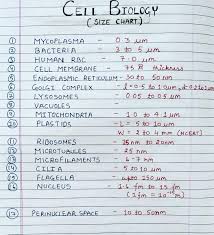 CELL BIOLOGY
( SIZE CHART )
① MYCOPLASMA - 0.3 μm
② BACTERIA - 3 to 5 μm
③ HUMAN RBC - 7.0 μm
④ CELL MEMBRANE - 75 Å thickness
⑤ ENDOPLASMIC RETICULUM - 30 to 50 nm
⑥ GOLGI COMPLEX - L = 0.5 to 1.0 μm,
⑦ LYSOSOMES - 0.05 to 0.5 μm
⑧ VACUOLES -
⑨ MITOCHONDRIA - 1.0 to 4.1 μm
⑩ PLASTIDS - L = 5 to 10 μm
W = 2 to 4 mm (NCERT)
⑪ RIBOSOMES - 15 nm to 20 nm
⑫ MICROTUBULES - 25 nm
⑬ MICROFILAMENTS - 6-7 nm
⑭ CILIA - 5 to 10 μm
⑮ FLAGELLA - upto 150 μm
⑯ NUCLEUS - 1.6 fm to 15 fm
(1 fm = 10⁻¹⁵ m)
⑰ PERINUCLEAR SPACE - 10 to 50 nm